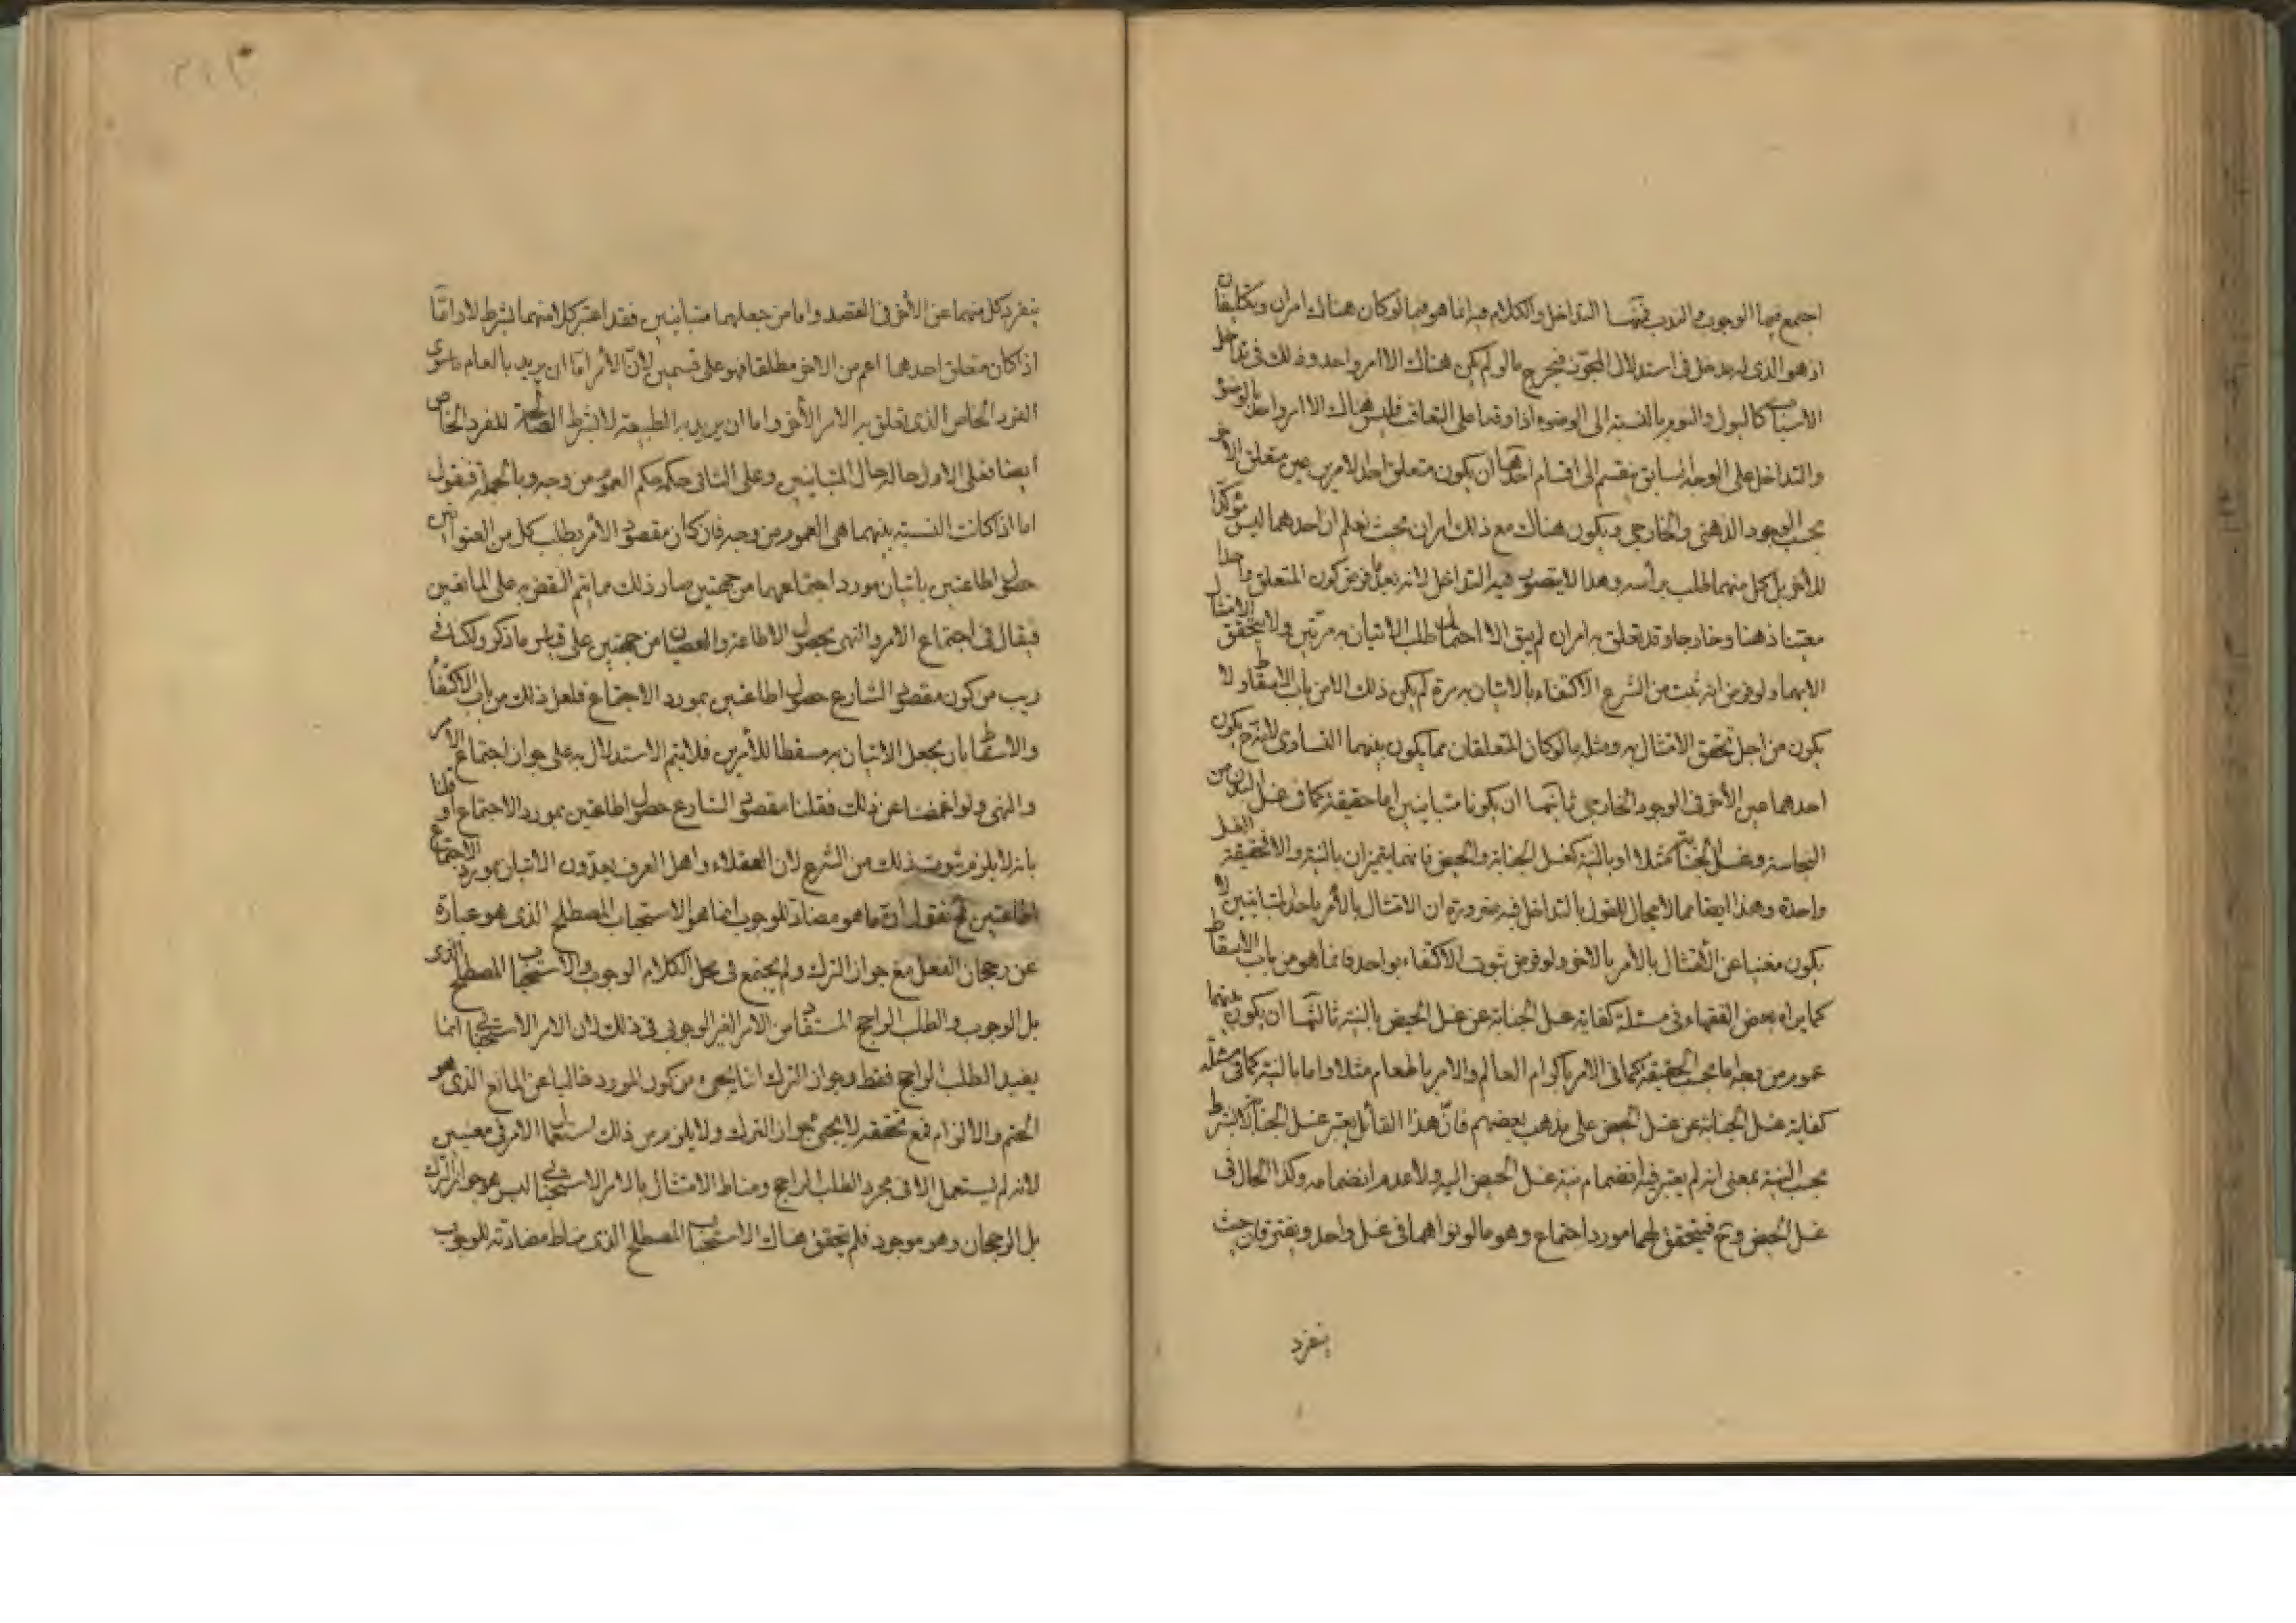 اجتمع فيها الوجوب والندب فمنها التداخل والكلام فيه انما هو فيما لو كان هناك امران وتكليفان
اذ هو الذى له دخل فى استدلال المجوّز فيخرج ما لو لم يكن هناك الا امر واحد وذلك فى تداخل
الأسباب كالبول والنوم بالنسبة الى الوضوء اذا وقعا على التعاقب فليس هناك الا امر واحد بالوضوء
والتداخل على الوجه السابق ينقسم الى اقسام احدها ان يكون متعلق احد الامرين عين متعلق الآخر
بحسب الوجود الذهنى والخارجى ويكون هناك مع ذلك امران بحيث نعلم ان احدهما ليس مؤكدا
للآخر بل كل منهما طلب برأسه وهذا لا يتصور فيه التداخل لانه بعد فرض كون المتعلق واحدا
معيّنا ذهنا وخارجا وقد تعلق به امران لم يبق الا احتمال طلب الاتيان به مرتين ولا يتحقق الامتثال
الا بهما ولو فرض انه ثبت من الشرع الاكتفاء بالاتيان به مرة لم يكن ذلك الا من باب الاسقاط ولا
يكون من اجل تحقق الامتثال به ومثله ما لو كان المتعلقان مما يكون بينهما التساوى لانه ح يكون
احدهما عين الآخر فى الوجود الخارجى ثانيها ان يكونا متباينين اما حقيقة كما فى غسل البدن من
النجاسة وغسل الجنابة مثلا او بالنية كغسل الجنابة والحيض فانهما يتميزان بالنية والا فحقيقة الغسل
واحدة وهذا ايضا مما لا مجال للقول بالتداخل فيه ضرورة ان الامتثال بالأمر باحد المتباينين لا
يكون مغنيا عن الأمتثال بالأمر بالاخر ولو فرض ثبوت الاكتفاء بواحد فانما هو من باب الاسقاط
كما يراه بعض الفقهاء فى مسئلة كفاية غسل الجنابة عن غسل الحيض بالنية ثالثها ان يكون بينهما
عموم من وجه اما بحسب الحقيقة كما فى الامر باكرام العالم والامر باطعام مثلا واما بالنية كما فى مسئلة
كفاية غسل الجنابة عن غسل الحيض على مذهب بعضهم فانّ هذا القائل يعتبر غسل الجنابة لا بشرط
بحسب النية بمعنى انه لم يعتبر فيه انضمام نية غسل الحيض اليه ولا عدم انضمامه وكذا الحال فى
غسل الحيض و ح فيتحقق لهما مورد اجتماع وهو ما لو نواهما فى غسل واحد ويفترقان حيث
ينفرد
ينفرد كل منهما عن الأخر فى القصد واما من جعلهما متباينين فقد اعتبر كلا منهما بشرط لا واما
اذا كان متعلق احدهما اعم من الاخر مطلقا فهو على قسمين لأنّ الأمر امّا ان يريد بالعام ما سوى
الفرد الخاص الذى تعلق به الامر الأخر واما ان يريد به الطبيعة لا بشرط الصالحة للفرد الخاص
ايضا فعلى الاول حاله حال المتباينين وعلى الثانى حكمه حكم العموم من وجه وبالجملة فنقول
اما اذا كانت النسبة بينهما هى العموم من وجه فان كان مقصود الأمر بطلب كل من العنوانين
حصول اطاعتين باتيان مورد اجتماعهما من جهتين صار ذلك مما يتم النقض به على المانعين
فيقال فى اجتماع الامر والنهى بحصول الاطاعة والعصيان من جهتين على قياس ما ذكر ولكنا فى
ريب من كون مقصود الشارع حصول اطاعتين بمورد الاجتماع فلعل ذلك من باب الاكتفاء
والاسقاط بان يجعل الاتيان به مسقطا للأمرين فلا يتم الاستدلال به على جواز اجتماع الامر
والنهى ولو اغمضنا عن ذلك فقلنا مقصود الشارع حصول اطاعتين بمورد الاجتماع او قلنا
بانه لا يلزم ثبوت ذلك من الشرع لان العقلاء واهل العرف يعدّون الاتيان بمورد الاجتماع
اطاعتين ثم نقول ان ما هو مضاد للوجوب انما هو الاستحباب المصطلح الذى هو عبارة
عن رجحان الفعل مع جواز الترك ولم يجتمع فى محل الكلام الوجوب والاستحباب المصطلح الذى
بل الوجوب والطلب الراجح المستفاد من الامر الغير الوجوبى فى ذلك لان الامر الاستحبابى انما
يفيد الطلب الراجح فقط وجواز الترك انما يجىء من كون المورد خاليا عن المانع الذى هو
الحتم والالزام فمع تحققه لا يجىء جواز الترك ولا يلزم من ذلك استعمال الامر فى معنيين
لانه لم يستعمل الا فى مجرد الطلب الراجح ومناط الامتثال بالامر الاستحبابى ليس هو جواز الترك
بل الرجحان وهو موجود فلم يتحقق هناك الاستحباب المصطلح الذى مناط مضادته للوجوب